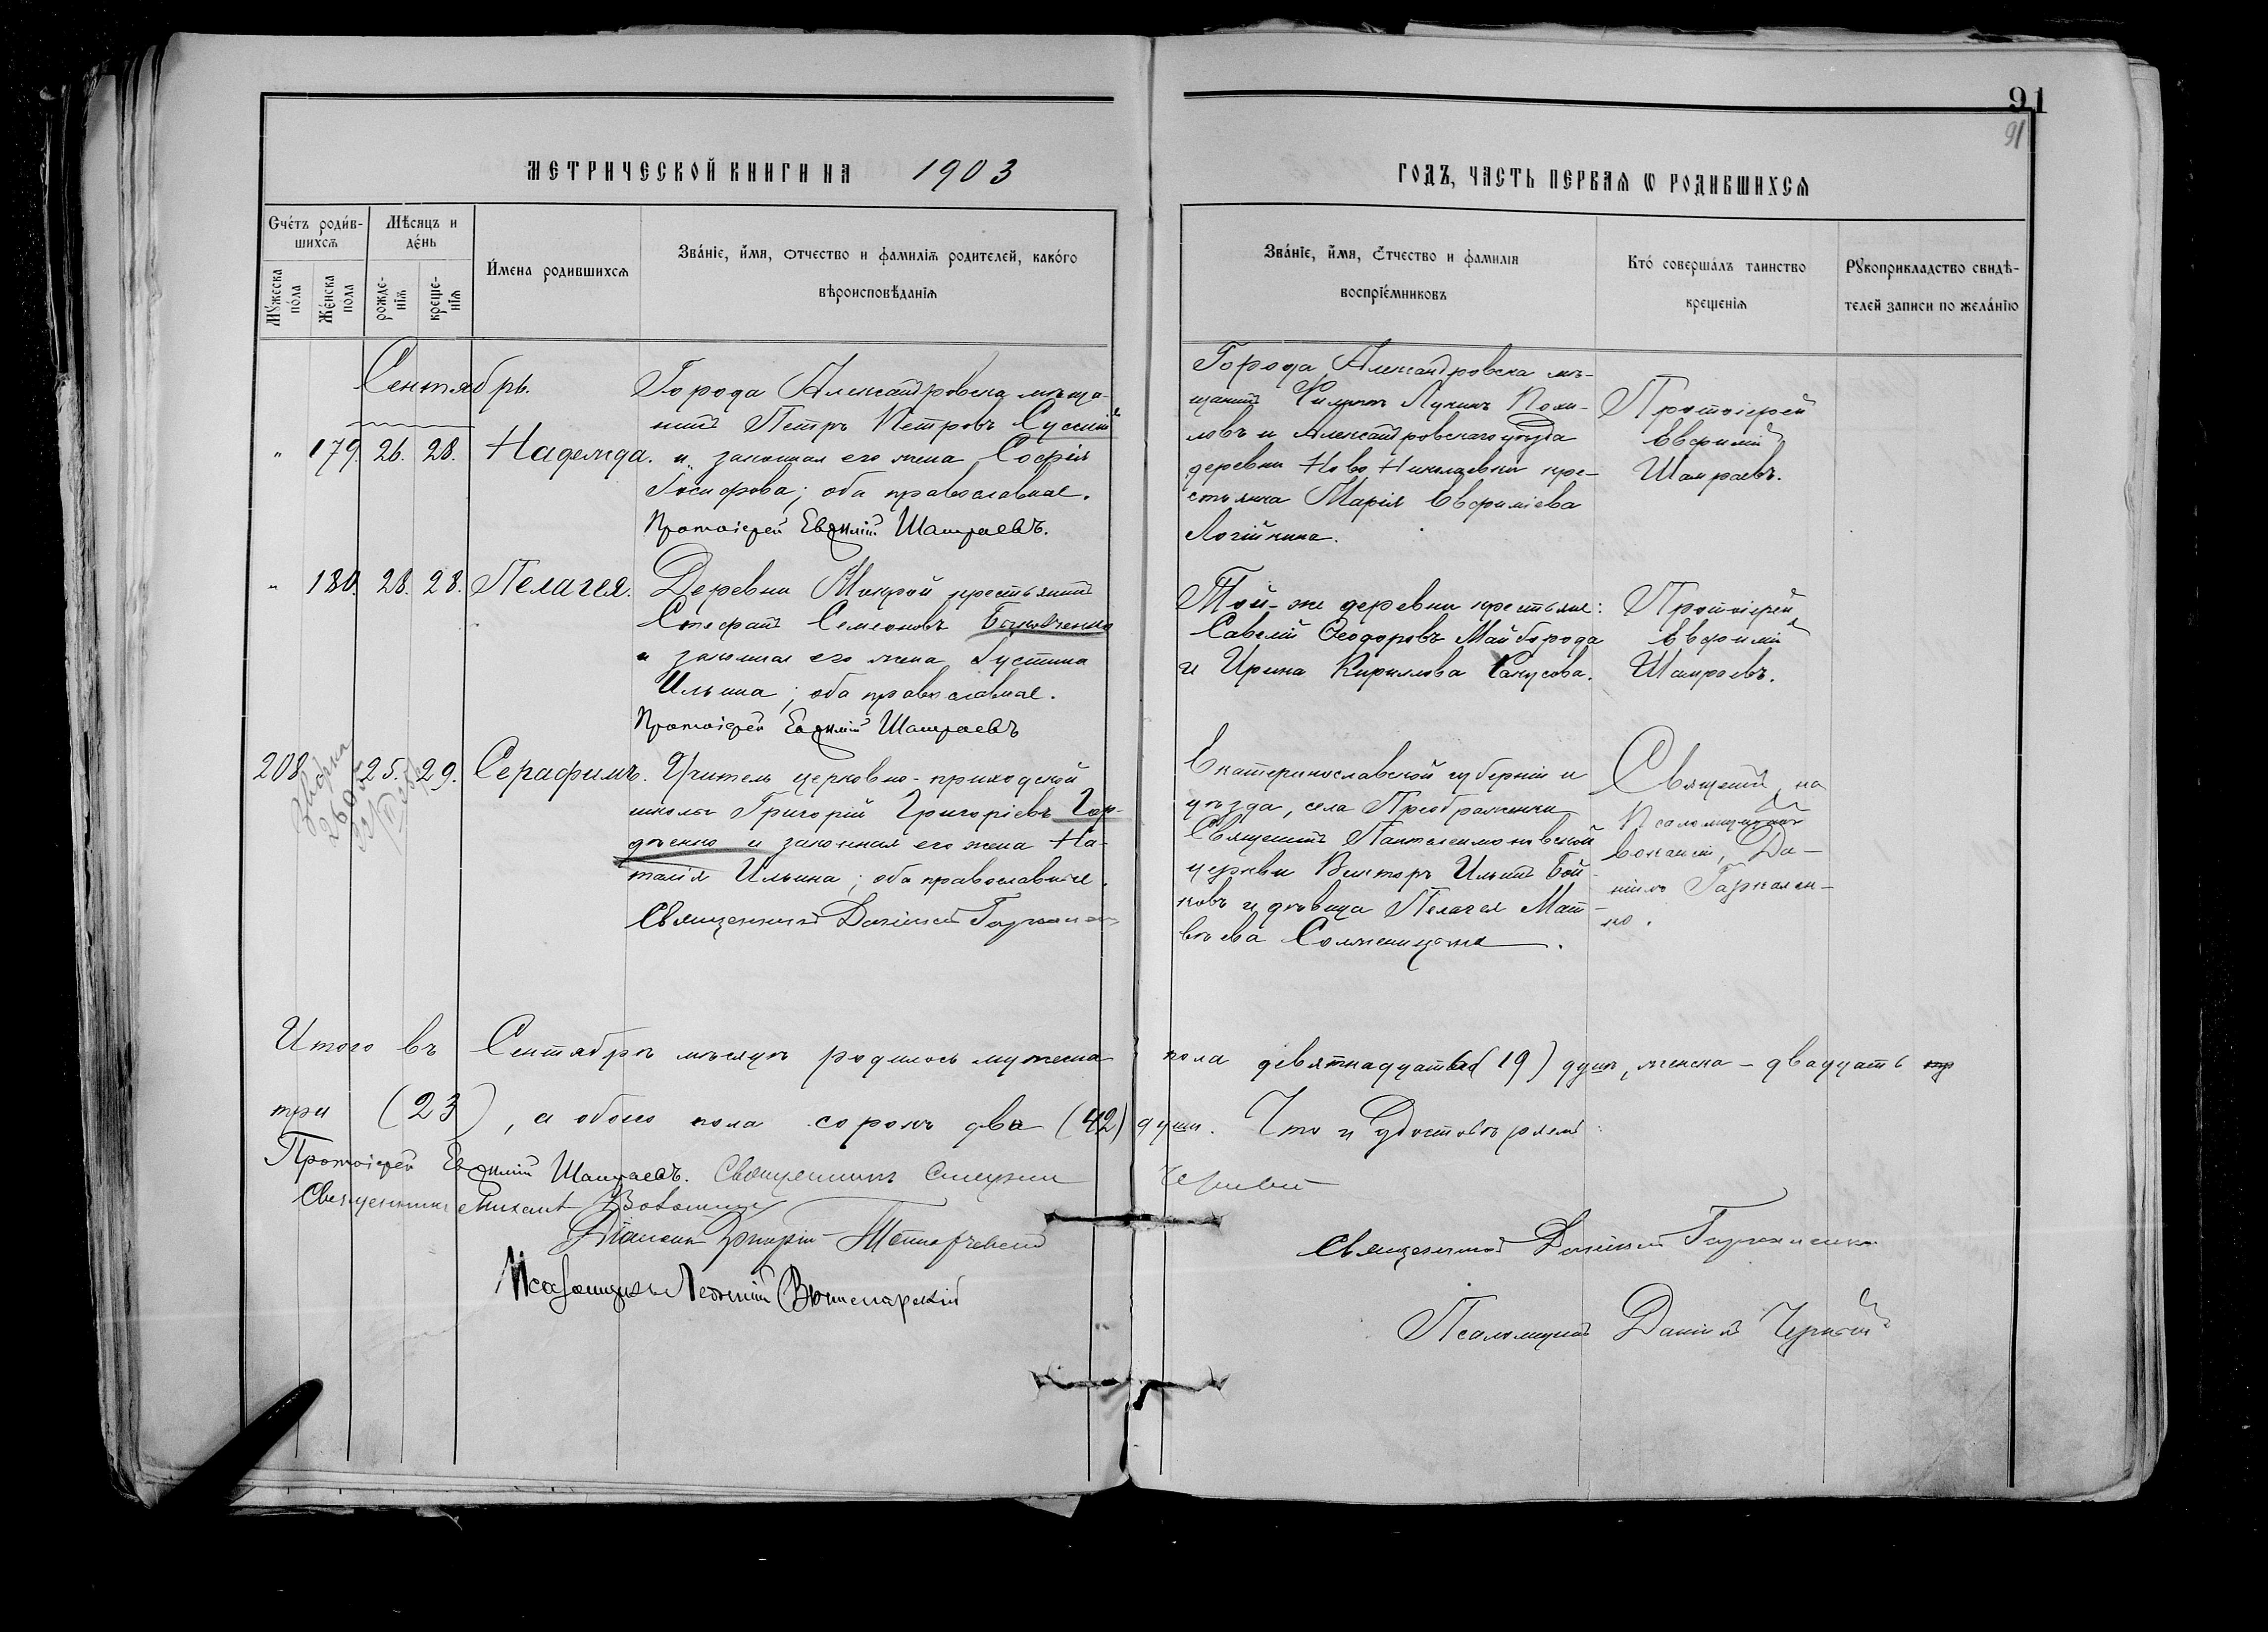 91
91
МЕТРИЧЕСКОЙ КНИГИ НА 1903
ГОДЪ, ЧАСТЬ ПЕРВАѦ Ѡ РОДИВШИХСѦ
Счéтъ роди́в-
шихсѧ
Мѣсяцъ и
дéнь
И́мена родившихсѧ
Звáнїе, и́мя, отчество и фамилїѧ родителей, какóго
вѣроисповѣданїѧ
Мꙋ́жеска
пóла
Жéнска
пола
рожде-
нїѧ
креще-
нїѧ
Звáнїе, и́мя, Óтчество и фамилїя
воспрїéмниковъ
Ктó совершáлъ таинство
крещенїѧ
Рꙋкоприкладство свидѣ-
телей записи по желáнїю
Сентябрь.
„ 179. 26. 28. Надежда.
Города Александровска мѣща-
нинъ Петръ Петровъ
и законная его жена Софія
Іосифова; оба православные.
Протоіерей Евѳимій Шамраевъ.
Города Александровска мѣ-
щанинъ Лукинъ
ловъ и Александровскаго уѣзда
деревни Ново Николаевки кре-
стьянка Марія Евфиміева
Протоіерей
Евфимій
Шамраевъ.
„ 180. 28. 28. Пелагея.
Деревни Мокрой крестьянинъ
Стефанъ Семеоновъ
и законная его жена Іустина
Ильина; оба православные.
Протоіерей Евѳимій Шамраевъ
Той-же деревни крестьяне:
Савелій Ѳеодоровъ Майборода
и Ирина Кириллова
Протоіерей
Евфимій
Шамраевъ.
208 25. 29. Серафимъ.
Учитель церковно-приходской
школы Григорій Григоріевъ Гор-
дѣенко и законная его жена На-
талія Ильина; оба православные.
Священникъ Даніилъ
Екатеринославской губерніи и
уѣзда, села Преображенки
Священникъ Пантелеимоновской
церкви Викторъ Ильинъ Бой-
ковъ и дѣвица Пелагея Мат-
вѣева
Священникъ на
Псаломщицкой
вакансіи, Да-
ніилъ Гаркален-
ко.
Итого въ Сентябрѣ мѣсяцѣ родилось мужеска пола девятнадцать (19) душъ, женска - двадцать
три (23), а обоего пола сорокъ два (42) душъ. Что и удостовѣряемъ:
Протоіерей Евѳимій Шамраевъ. Священникъ
Священникъ Михаилъ
Діаконъ Григорій
Священникъ Даніилъ
Псаломщикъ Леонтій
Псаломщикъ Даніилъ Черный